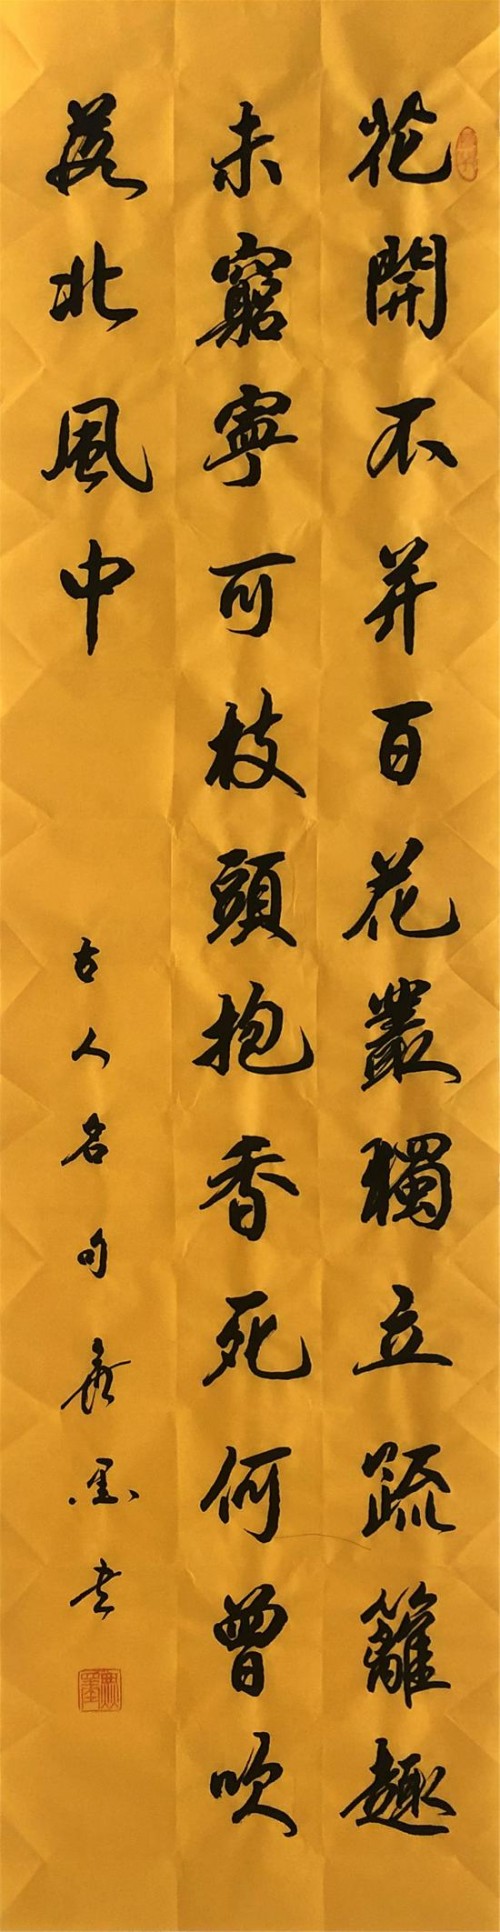 花開不并百花叢獨立疏籬趣
未窮寧可枝頭抱香死何曾吹
落北風中
古人名句 墨书